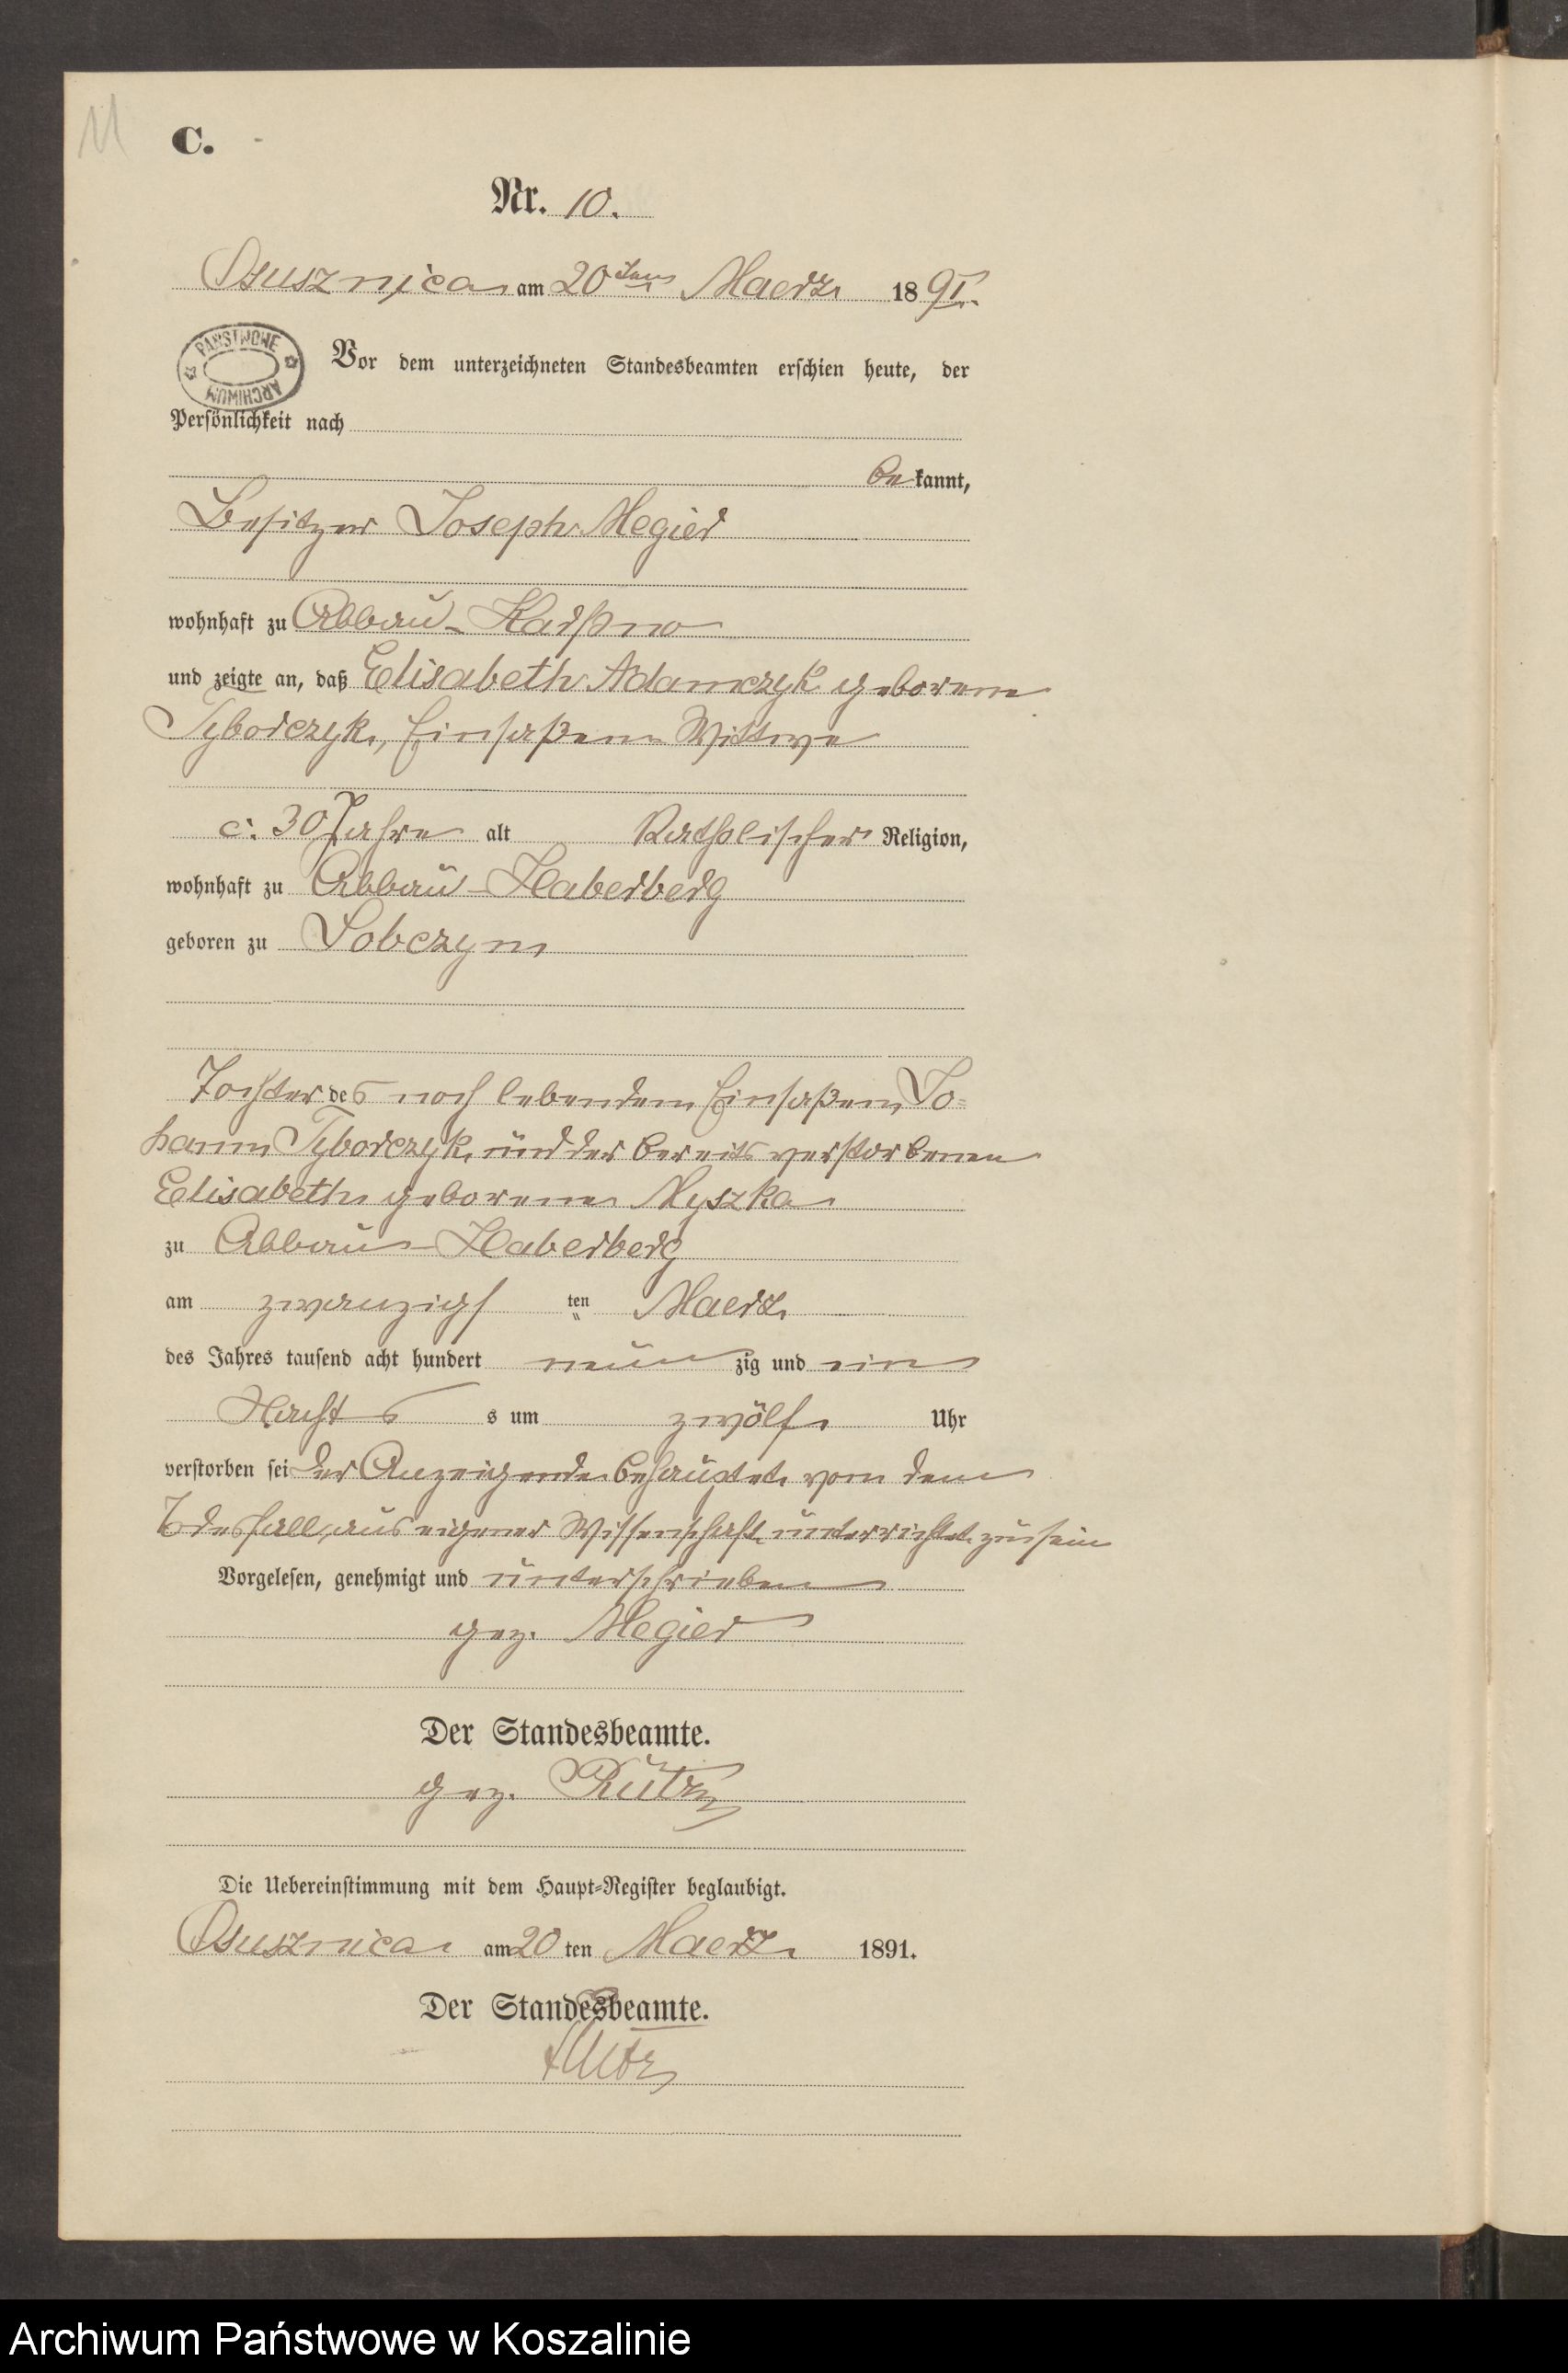 11
C.
Nr. 10.
Osusznica am 20ten Maerz 1891.
PAŃSTWOWE ARCHIWUM
Vor dem unterzeichneten Standesbeamten erschien heute, der
Persönlichkeit nach
be kannt,
Besitzer Joseph Megier
wohnhaft zu Abbau-Karßno
und zeigte an, daß Elisabeth Adamczyk geborene
Tyborczyk, Einsaßen Wittwe
c. 30 Jahre alt Katholischer Religion,
wohnhaft zu Abbau-Haberberg
geboren zu Sobczyn
Tochter des noch lebenden Einsaßen Jo=
hann Tyborczyk und der bereits verstorbenen
Elisabeth geborene Myszka
zu Abbau-Haberberg
am zwanzigs ten Maerz
des Jahres tausend acht hundert neun zig und ein
Nachts s um zwölf Uhr
verstorben sei der Anzeigende behauptet von dem
Todesfall, aus eigener Wissenschaft unterrichtet zu sein
Vorgelesen, genehmigt und unterschrieben
gez. Megier
Der Standesbeamte.
gez. Rutz
Die Uebereinstimmung mit dem Haupt-Register beglaubigt.
Osusznica am 20 ten Maerz 1891.
Der Standesbeamte.
Rutz
Archiwum Państwowe w Koszalinie